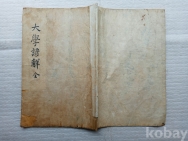 大學諺解 全
kobay